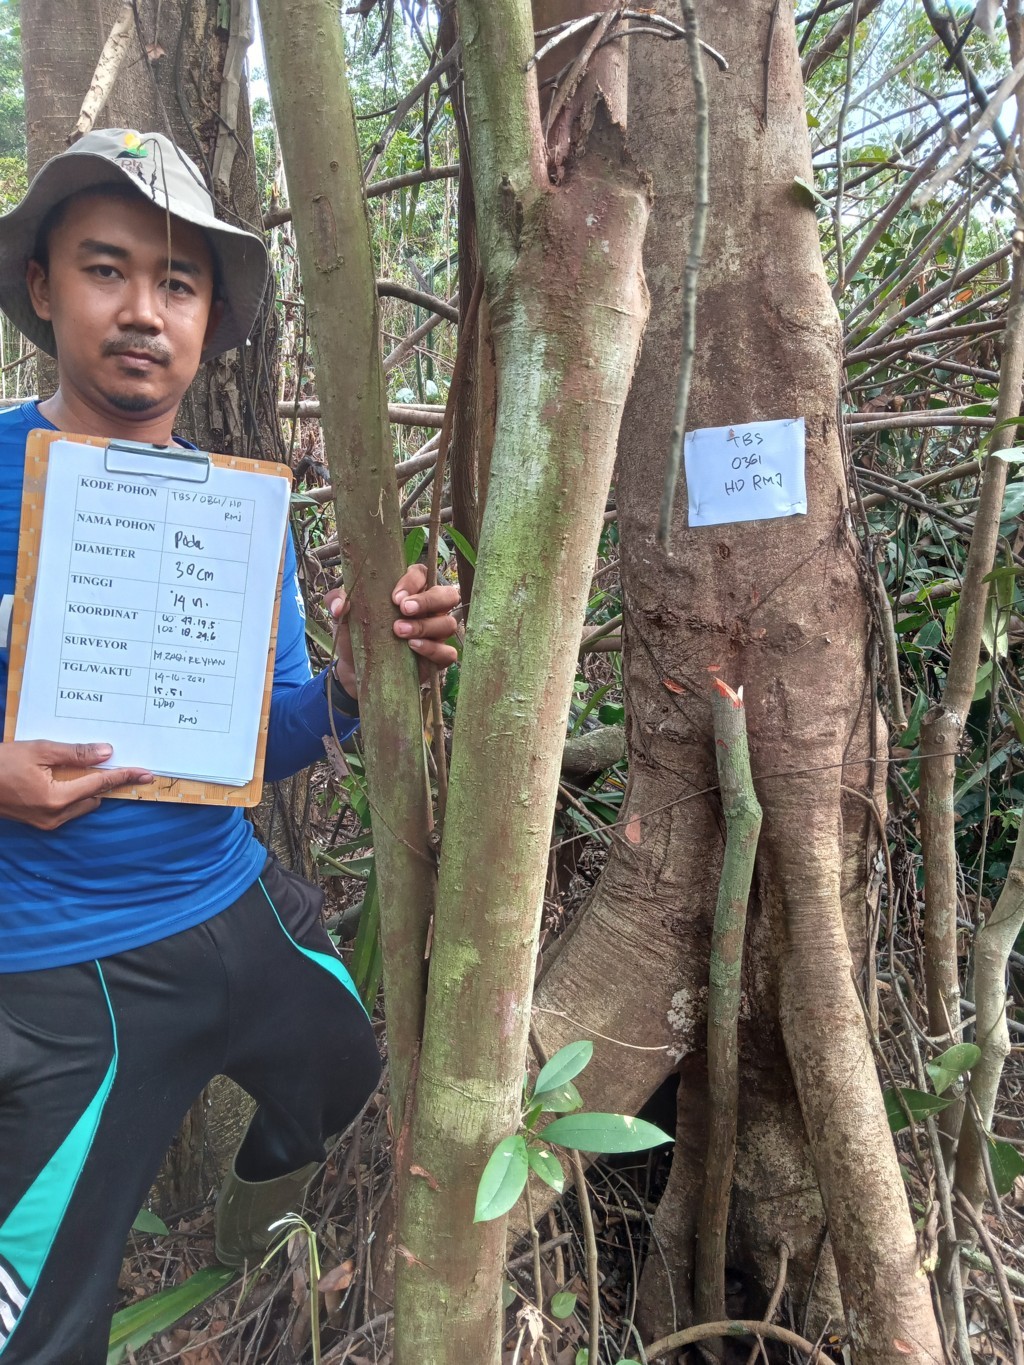 KODE POHON TBS/0361/HD
RMJ
NAMA POHON Pada
DIAMETER 38 CM
TINGGI 14 m.
KOORDINAT 00° 47.19.5
102° 18.24.6
SURVEYOR M.ZAQI REYHAN
TGL/WAKTU 14-10-2021
15.51
LOKASI LDHD
RMJ
TBS
0361
HD RMJ